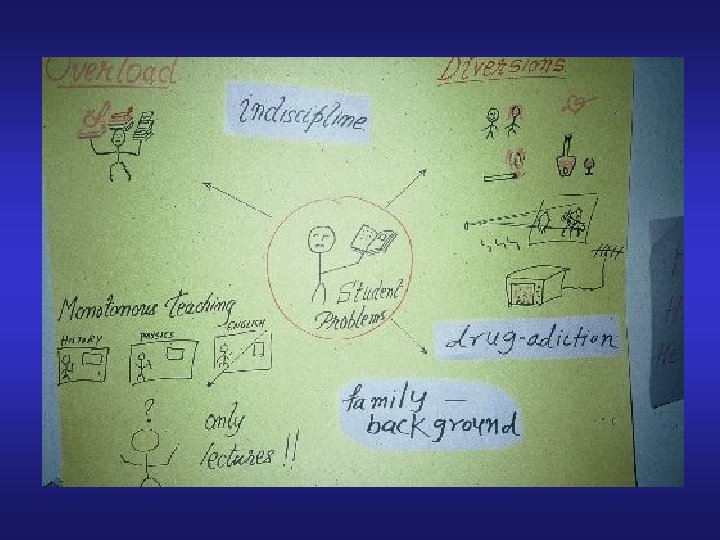 Overload
Diversions
indiscipline
Student
Problems
Monotonous Teaching
HISTORY
PHYSICS
ENGLISH
drug-adiction
family –
background
?
only
lectures !!
H
He